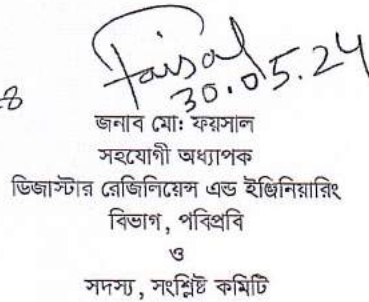 Faisal
30.05.24
জনাব মো: ফয়সাল
সহযোগী অধ্যাপক
ডিজাস্টার রেজিলিয়েন্স এন্ড ইঞ্জিনিয়ারিং
বিভাগ, পবিপ্রবি
ও
সদস্য, সংশ্লিষ্ট কমিটি